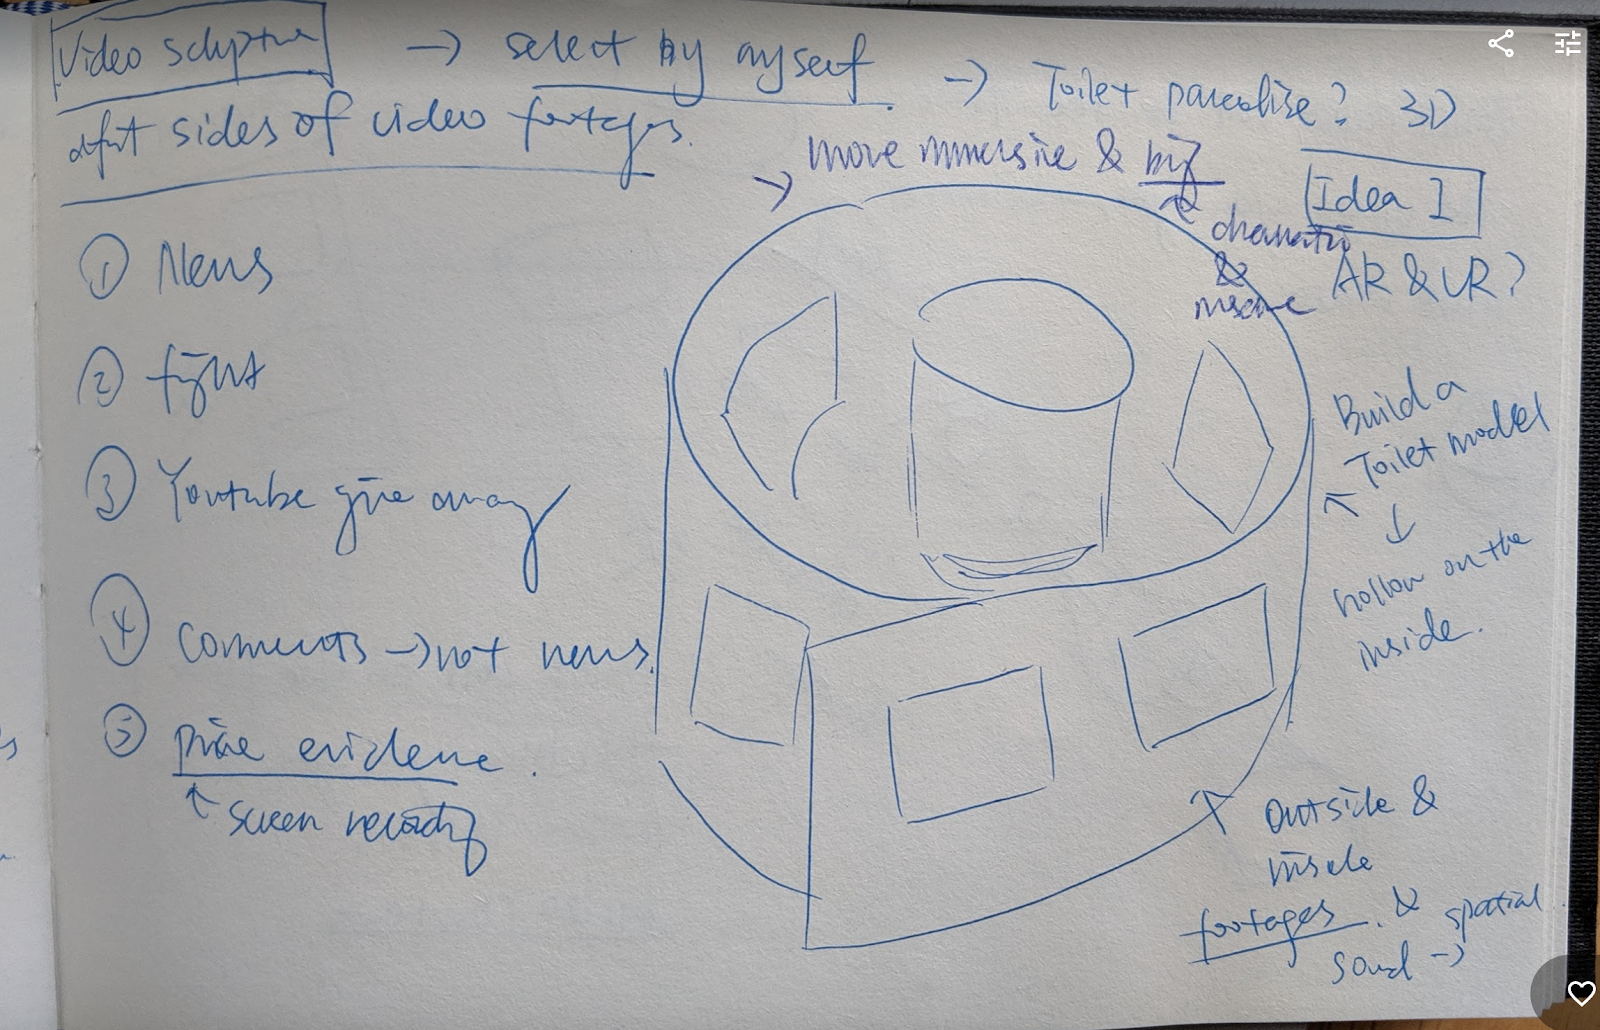 Video sculpture → select by myself. → Toilet paradise? 3D
dfnt sides of video footages.
→ more immersive & big
Idea 1
dramatic
&
AR & VR?
① News
② fight
③ Youtube give away
④ Comments → not news.
⑤ price evidence.
↑ screen recording
Build a
Toilet model
↓
hollow on the
inside.
outside &
inside
footages. & spatial
sound →